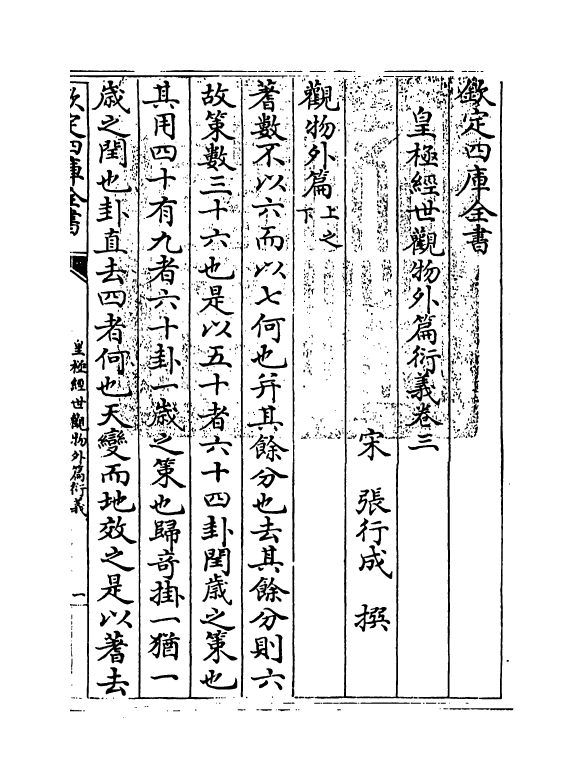 欽定四庫全書
皇極經世觀物外篇衍義卷三
宋 張行成 撰
觀物外篇上之下
蓍數不以六而以七何也并其餘分也去其餘分則六
故策數三十六也是以五十者六十四卦閏歲之策也
其用四十有九者六十卦一歲之策也歸奇掛一猶一
歲之閏也卦直去四者何也天變而地效之是以蓍去
欽定四庫全書
皇極經世觀物外篇衍義
一